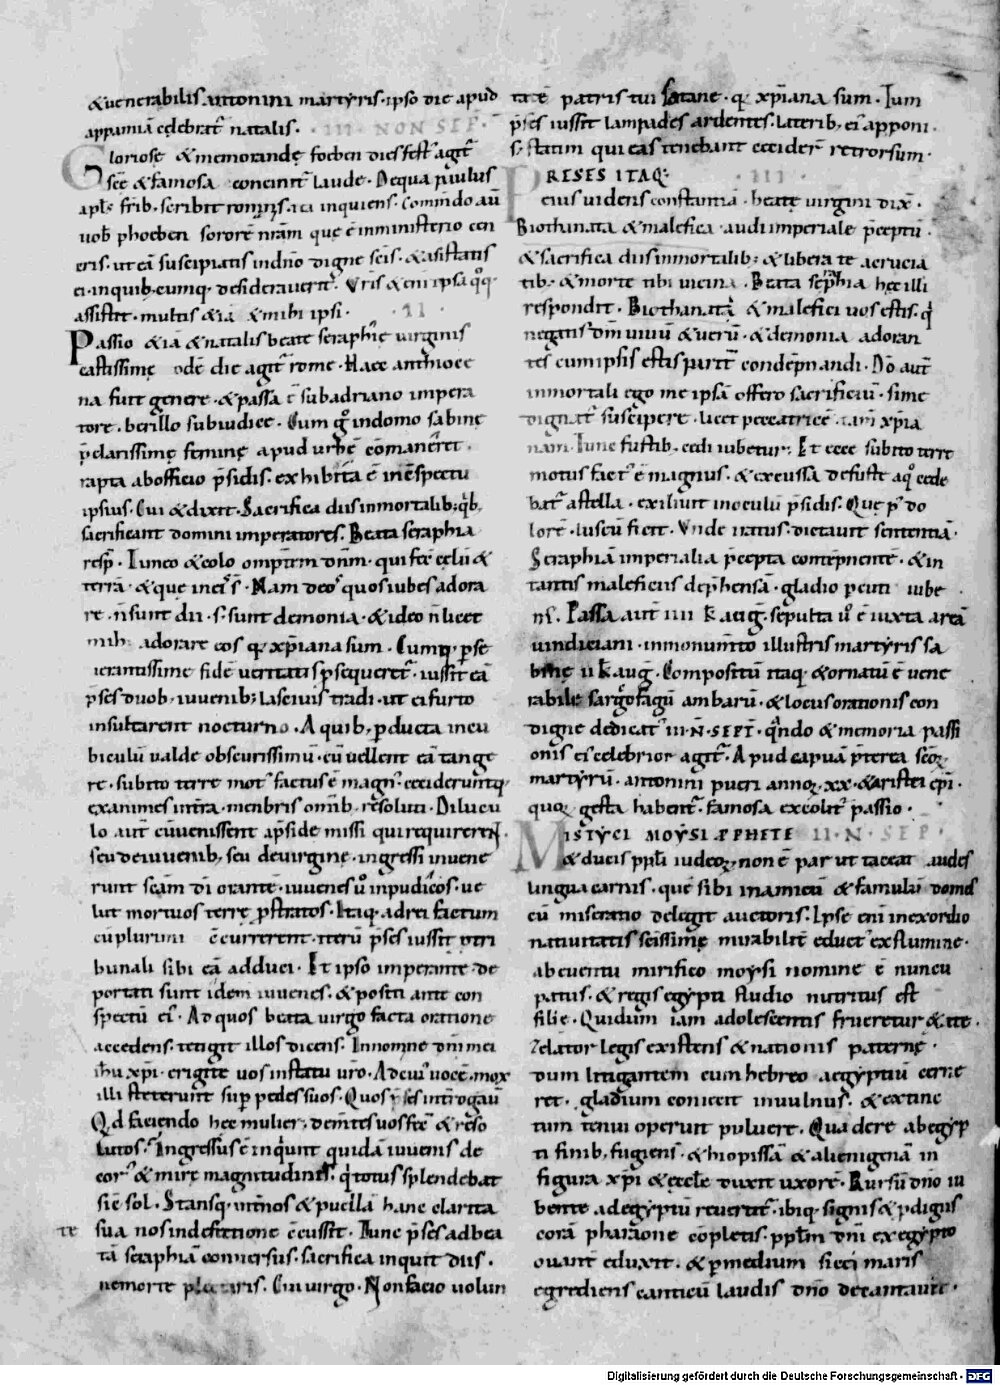 & uenerabilis antonini martyris. ipso die apud
appamiā celebrat̄ natalis. III NON SEP.
Gloriosę & memorandę foeben dies fest᷒ agit᷒
scē & famosa concinit᷒ laude. De qua paulus
apl᷒s frīb. scribit romanis inquiens. Commendo aū
uob phoeben sororē nrām que ē in ministerio cen
eris. ut eā suscipiatis in dn̄o digne sc̄is. & assistatis
ei. in quib. cumq. desiderauerit. Vr̄is & eni ipsa q̊q
assistit. multis & iā & mihi ipsi. II
Passio & iā & natalis beate seraphię uirginis
castissimę odē die agit᷒ rome. Haec anthioce
na fuit genere. & passa ē sub adriano impera
tore. berillo sub iudice. Cum g̊ in domo sabinę
p̄clarissimę feminę apud urbē cōmaneret.
rapta ab officio p̄sidis. exhibita ē in c̄spectu
ipsius. Cui & dixit. Sacrifica diis inmortalib; q̄b,
sacrificant domini imperatores. Beata seraphia
resp̄. Timeo & colo omp̄tm dn̄m. qui fec̄ cęlū &
terrā. & que in eis s̄. Nam deos quos iubes adora
re. n̄ sunt dii. s. sunt demonia. & ideo n̄ licet
mihi adorare eos q᷒ xp̄iana sum. Cumq. p̄se
uerantissime fidē ueritatis p̄sequeret᷒. iussit eā
p̄ses duob, iuuenib; lasciuis tradi. ut ei furto
insultarent nocturno. A quib, p̄ducta in cu
biculū ualde obscurissimū. cū uellent eā tange
re. subito terre mot᷒ factus ē magn᷒. cecideruntq.
exanimes intra. menbris omīb, resoluti. Dilucu
lo aut̄ cū uenissent a p̄side missi qui requirerent.
seu de iuuenib, seu de uirgine. ingressi inuene
runt sc̄am dī orante. iuuenes ū impudicos. ue
lut mortuos terrę p̄stratos. Itaq. ad rei factum
cū plurimi c̄currerent. iterū p̄ses iussit p̄ tri
bunali sibi eā adduci. Et ipso imperante. de
portati sunt idem iuuenes. & positi ante con
spectū ei᷒. Ad quos beata uirgo facta oratione
accedens. tetigit illos dicens. In nomine dn̄i mei
ih̄u xp̄i. erigite uos in statu ūro. Ad cui᷒ uocē. mox
illi steterunt sup̄ pedes suos. Quos p̄ses int̄rogauit
Qd faciendo hec mulier. dem̄tes uos fec̄ & reso
lutos. Ingressus ē inq̄unt quidā iuuenis de
cor᷒ & mirę magnitudinis. q̄ totus splendebat
sic̄ sol. Stansq. int̄ nos & puellā hanc claritа
te sua nos in defectione c̄cussit. Tunc p̄ses ad bea
tā seraphiā conuersus. sacrifica inquit diis.
ne morte plectaris. Cui uirgo. Non facio uolun
tatē patris tui satane. q᷒ xp̄iana sum. Tum
p̄ses iussit lampades ardentes. laterib, ei᷒ apponi.
s. statim qui eas tenebant ceciderr̄ retrorsum.
PRESES ITAQ: III.
eius uidens constantiā. beatę uirgini dix̄.
Biothanata & malefica. audi imperiale p̄ceptū.
& sacrifica diis inmortalib; & libera te a crucia
tib, & morte tibi uicina. Beata seraphia hęc illi
respondit. Biothanati & malefici uos estis. q̄
negatis dm̄ uiuū & uerū. & demonia adoran
tes cum ipsis estis parit̄ condēpnandi. Dō aut̄
inmortali ego me ipsā offero sacrificiū. si me
dignat᷒ suscipere. licet peccatricē. tam xp̄ia
nam. Tunc fustib. cędi iubetur. Et ecce subito terre
motus fact᷒ ē magnus. & excussa de fuste a q̊ cede
bat᷒ astella. exiliuit in oculū p̄sidis. Que p̄ do
lore. luscū fecit. Vnde iratus. dictauit sententiā.
Seraphiā imperialia p̄cepta contēpnentē. & in
tantis maleficiis dep̄hensā. gladio p̄cuti iube
m᷒. Passa aut̄ IIII K AUG. sepulta ū ē iuxta areā
uindiciani. in monum̄to illustris martyris sa
binę II K AUG. Compositū itaq. & ornatū ē uene
rabile sarg̊fagū ambarū. & locus orationis con
digne dedicat᷒ III. N. SEPT. q̄ndo & memoria passi
onis ei᷒ celebrior agit᷒. Apud capuā p̄terea scōꝝ
martyrū. antonini pueri annoꝝ. xx. & aristei ep̄i.
quoꝝ gesta habent᷒. famosa excolit᷒ passio.
MISTYCI MOYSI PPHETE II. N. SEP.
& ducis pp̄li iudeoꝝ. non ē par ut taceat laudes
lingua carnis. quē sibi in amicū & famulū domes
cū miseratio delegit auctoris. Ipse eni in exordio
natiuitatis scissime mirabilit̄ educt᷒ ex flumine.
ab euentu mirifico moysi nomine ē nuncu
patus. & regis egypti studio nutritus est
filie. Qui dum iam adolescentis frueretur ętate.
Zelator legis existens & nationis paternę.
dum litigantem cum hebreo aegyptiū cerne
ret. gladium coniecit in uulnus. & extinc
tum tenui operuit puluere. Qua de re ab egyp
ti finib, fugiens. & hiopissā & alienigenā in
figura xp̄i & eccle duxit uxorē. Rursū dn̄o iu
bente ad egyptū reuertit᷒. ibiq. signis & p̄digiis
corā pharaone cōpletis. pp̄lm dn̄i ex egypto
ouant̄ eduxit. & p̄ medium sicci maris
egrediens canticū laudis dn̄o decantauit.
Digitalisierung gefördert durch die Deutsche Forschungsgemeinschaft - DFG